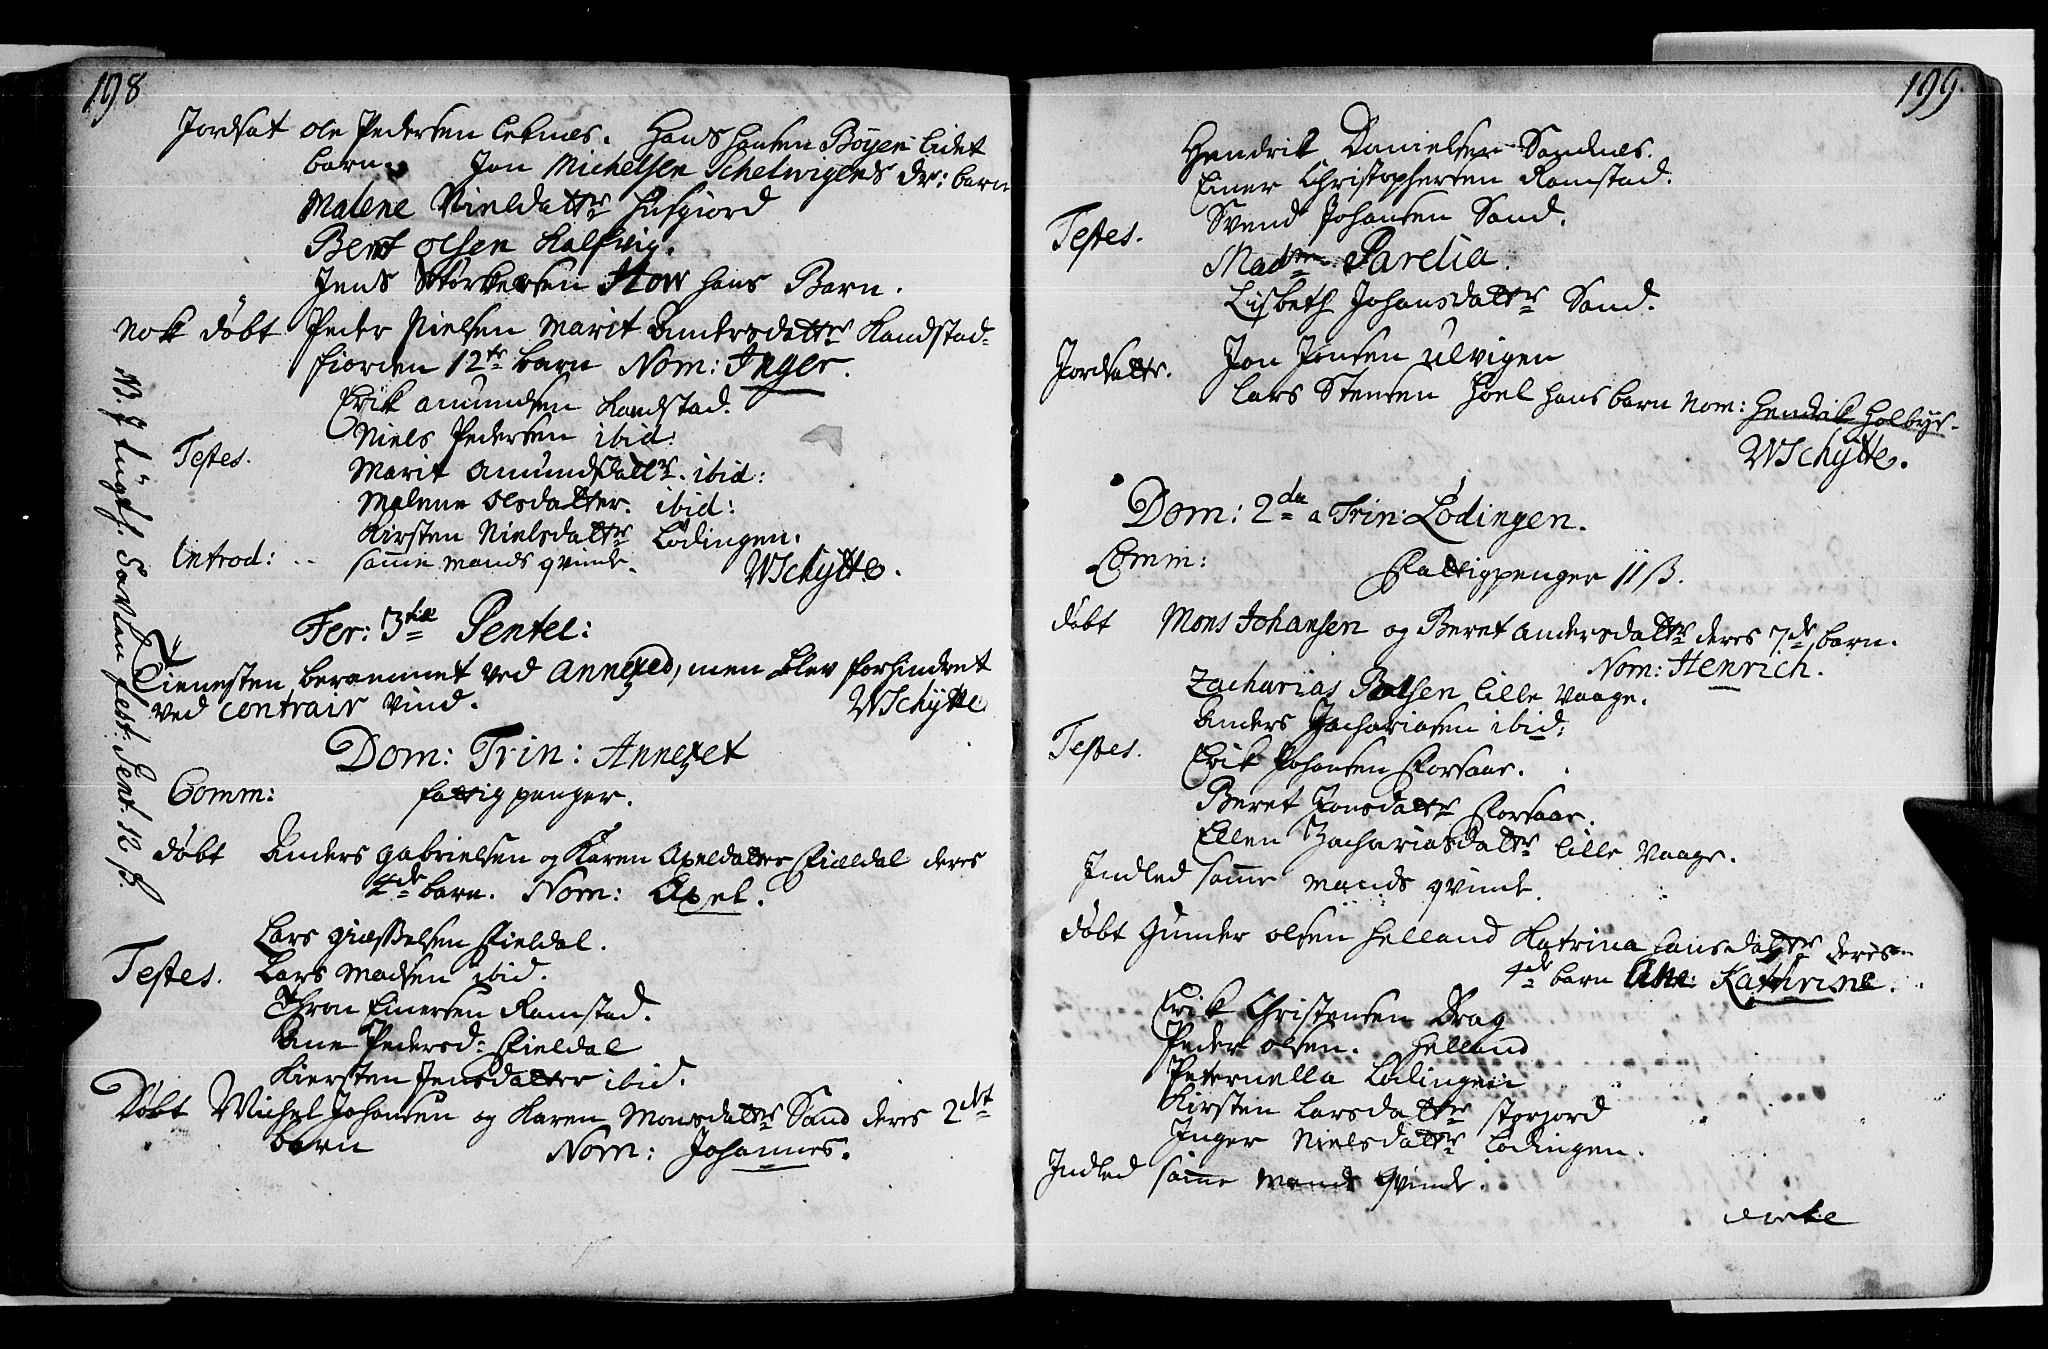 198
Jordsat Ole Pedersen Leknes. Hans Hansen Böyen lidet
barn. Jon Michelsen Schelwigens dr: barn
Malene Nieldattr Husgiord
Bent Olsen Kalfvig.
Jens Störkersen How hans Barn.
Nok döbt Peder Nielsen Marit Andersdattr Kandstad-
fiorden 12te barn Nom: Inger.
Erik Amundsen Kandstad.
Niels Pedersen ibid:
Testes.
Marit Amundsdattr. ibid:
Malene Olsdatter. ibid:
Kirsten Nielsdattr Lödingen.
Introd: .. samme mands qvinde.
WSchytte.
Fer: 3tiæ Pentec:
Tienesten berammet ved Annexed, men blev forhindret
ved contrair vind.
WSchytte
Dom: Trin: Annexet
Comm: fattigpenger.
döbt Anders Gabrielsen og Karen Axeldatter Fieldal deres
4de barn. Nom: Axel.
Lars Giæsselsen Fieldal.
Testes. Lars Madsen ibid.
Thron Einersen Ramstad.
Ane Pedersd: Fieldal
Kiersten Jensdatter ibid.
Döbt Michel Johansen og Karen Monsdattr Sand deres 2det
barn Nom: Johannes.
199.
Hendrik Danielsen Sandnes.
Einer Christophersen Ramstad.
Testes.
Svend Johansen Sand.
Madme Parelia.
Lisbeth Johansdattr Sand.
Jordsatte.
Jon Jensen Ulvigen
Lars Stensen Hoel hans barn Nom: Hendrik Holbye.
WSchytte.
Dom: 2da a Trin: Lödingen.
Comm: Fattigpenger 11 ß.
döbt Mons Johansen og Beret Andersdattr deres 7de barn.
Nom: Henrich.
Zacharias Polsen lille Vaage.
Anders Zachariasen ibid:
Testes.
Erik Johansen Forsaae.
Beret Jonsdattr Forsaae.
Ellen Zachariasdattr lille Vaage.
Indled samme mands qvinde.
döbt Gunder Olsen Helland Katrina Hansdattr deres
4de barn Ane: Kathrine.
Erik Christensen Drag
Peder Olsen. Helland
Peternella Lödingen
Kirsten Larsdattr Storjord
Inger Nielsdattr Lödingen.
Indled samme mands Qvinde.